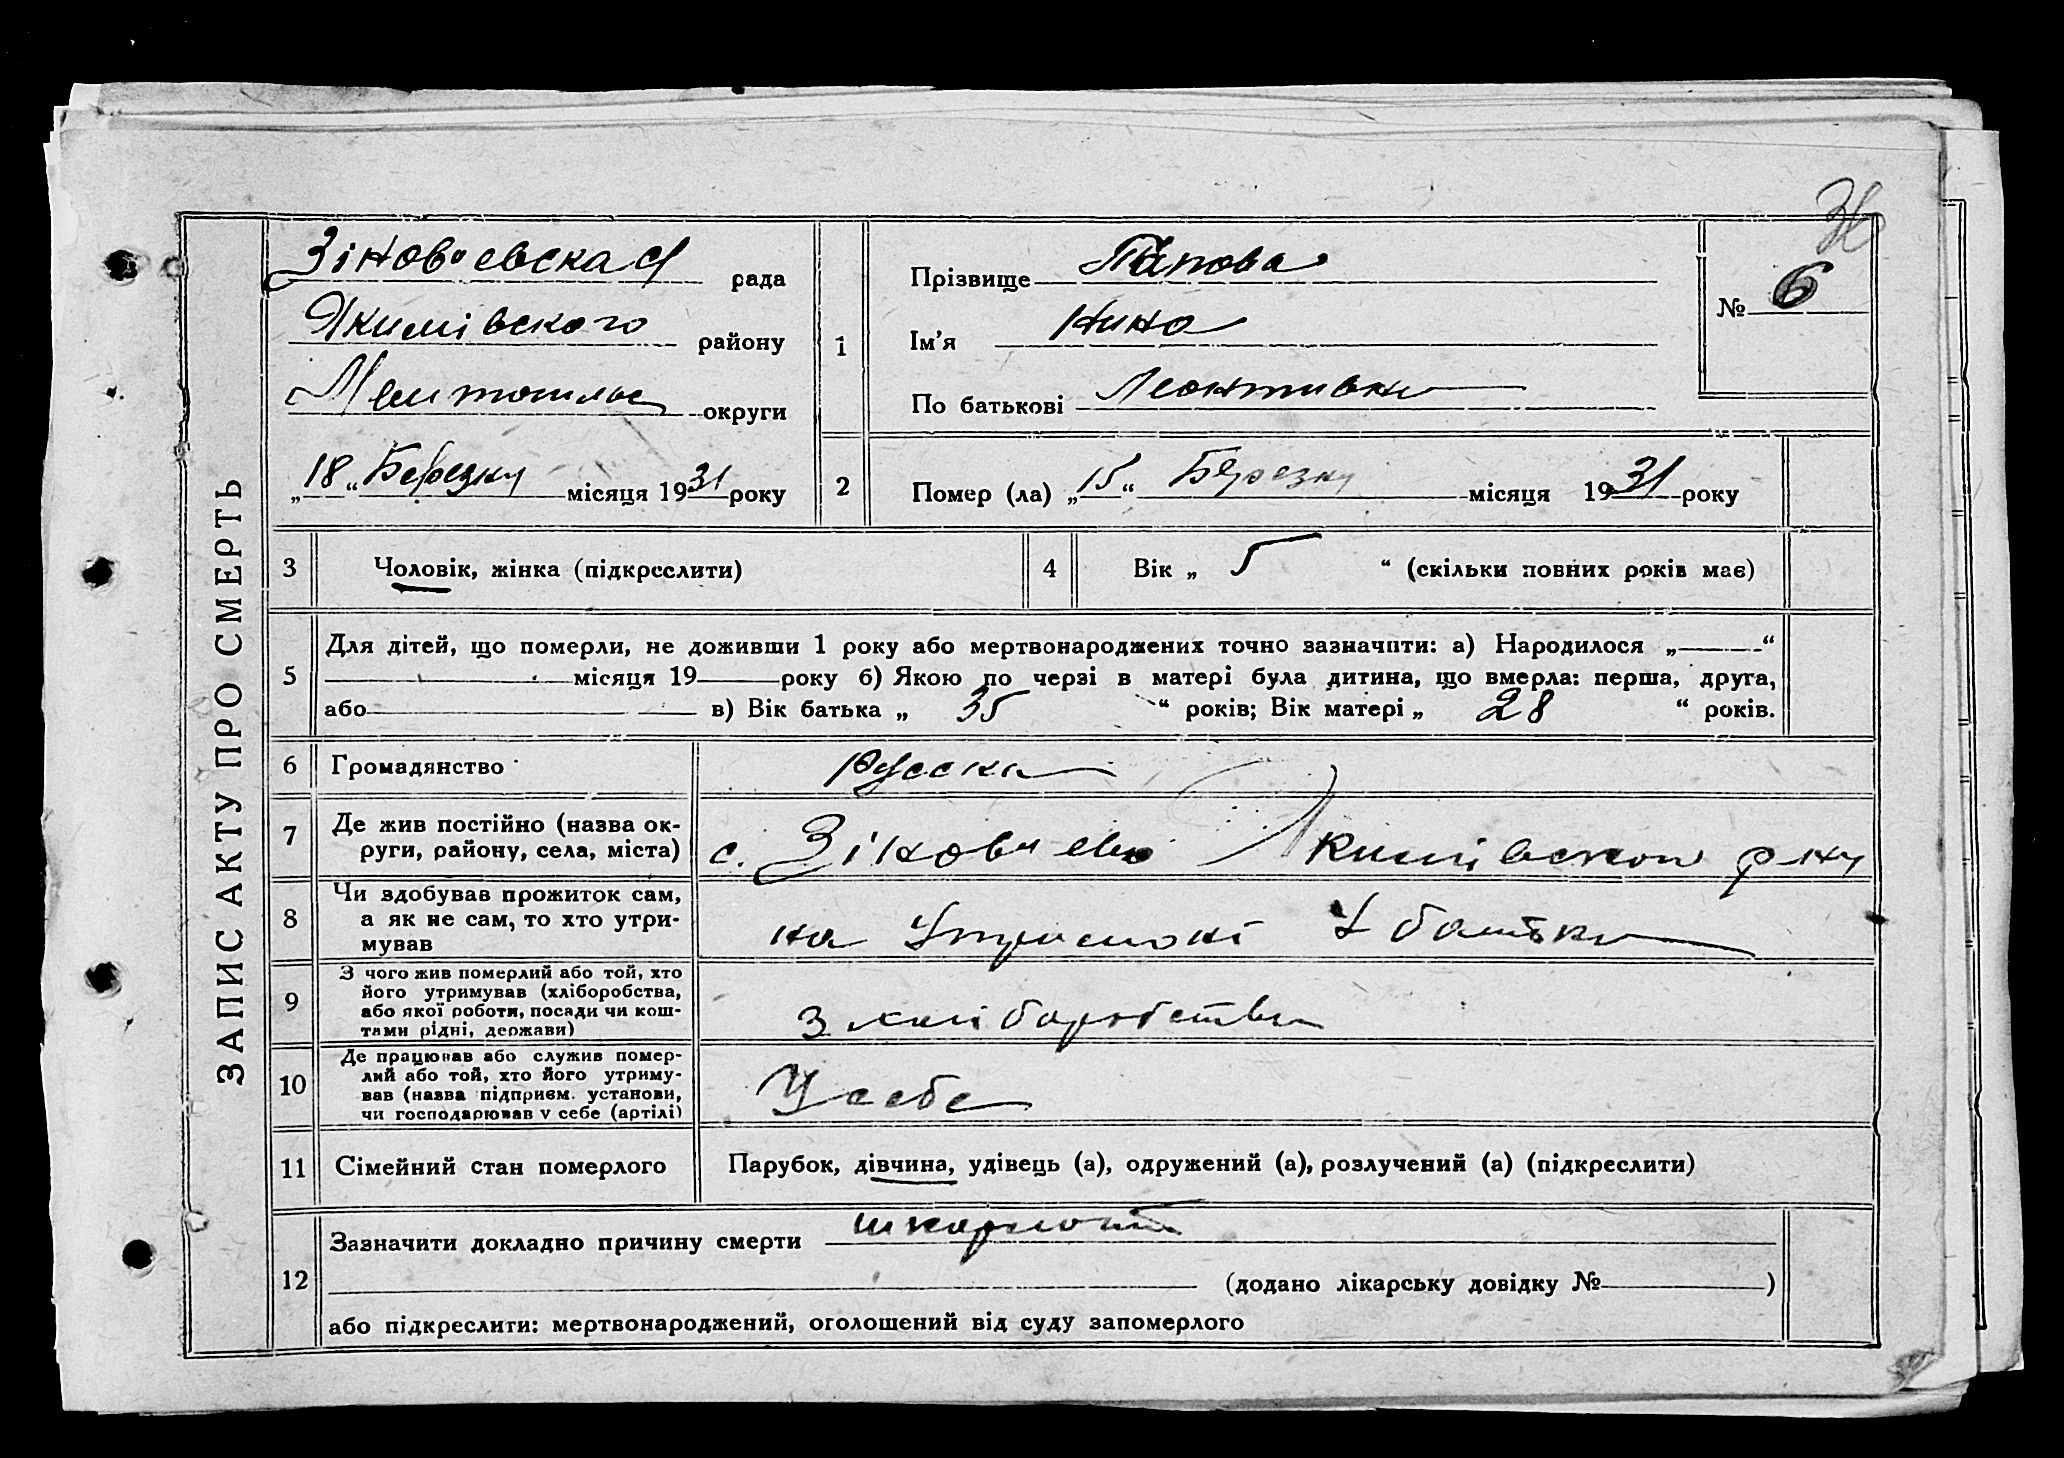 ЗАПИС АКТУ ПРО СМЕРТЬ
Зіновʼевская рада
Якимівского району
округи
„18“ Березня місяця 1931 року
1
Прізвище Папова
Ім'я Нина
По батькові
№ 6
2
Помер (ла) „15“ Березня місяця 1931 року
3
Чоловік, жінка (підкреслити)
4
Вік „ 5 “ (скільки повних років має)
5
Для дітей, що померли, не доживши 1 року або мертвонароджених точно зазначити: а) Народилося „——“
місяця 19 року б) Якою по черзі в матері була дитина, що вмерла: перша, друга,
або в) Вік батька „ 35 “ років; Вік матері „ 28 “ років.
6
Громадянство Русска
7
Де жив постійно (назва ок-
руги, району, села, міста)
с. Якимівского р-ну
8
Чи здобував прожиток сам,
а як не сам, то хто утри-
мував
на Утриманні У батька
9
З чого жив померлий або той, хто
його утримував (хліборобства,
або якої роботи, посади чи кош-
тами рідні, держави)
З хліборобства
10
Де працював або служив помер-
лий або той, хто його утриму-
вав (назва підприєм. установи,
чи господарював у себе (артілі)
У себе
11
Сімейний стан померлого
Парубок, дівчина, удівець (а), одружений (а), розлучений (а) (підкреслити)
12
Зазначити докладно причину смерти
(додано лікарську довідку № )
або підкреслити: мертвонароджений, оголошений від суду запомерлого